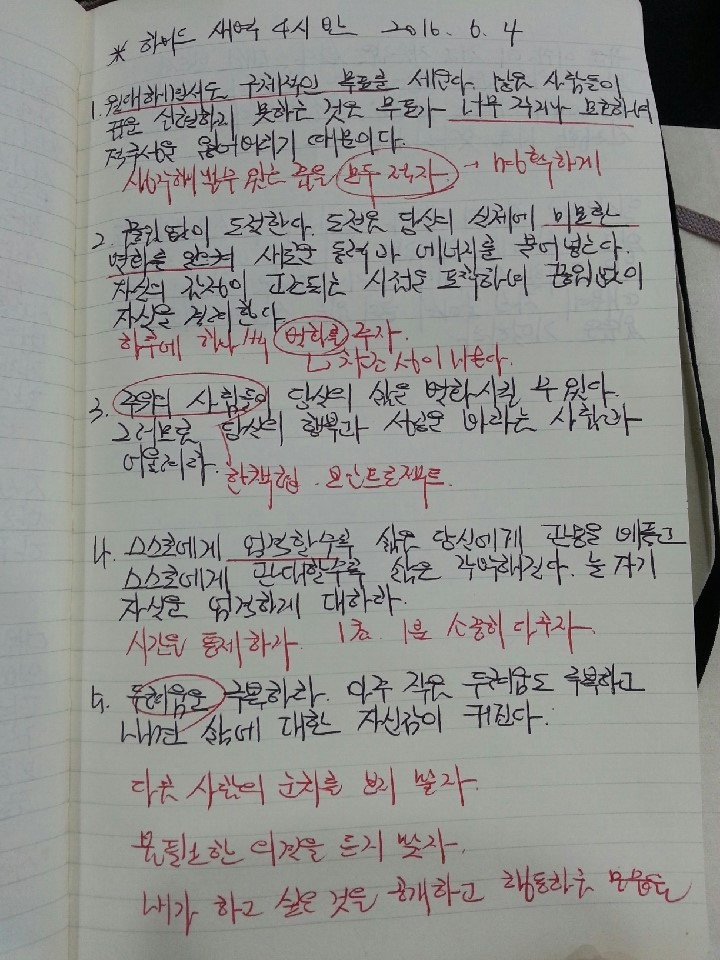 * 하버드 새벽 4시 반 2016. 6. 4
1. 원대하면서도 구체적인 목표를 세운다. 많은 사람들이
꿈을 실현하지 못하는 것은 목표가 너무 작거나 모호하여
적극성을 잃어버리기 때문이다.
생각해 볼 수 있는 꿈을 모두 적자 → 명확하게
2. 끊임없이 도전한다. 도전은 당신의 실제에 미묘한
변화를 일으켜 새로운 동력과 에너지를 불어넣는다.
자신의 감정이 고조되는 시점을 포착하여 끊임없이
자신을 격려한다.
하루에 하나씩 변화를 주자.
↳ 차근성이 나온다.
3. 주위의 사람들이 당신의 삶을 변화시킬 수 있다.
그러므로 당신의 행복과 성공을 바라는 사람과
어울려라.
한책협. 모닝프로젝트.
4. 스스로에게 엄격할수록 삶은 당신에게 관용을 베풀고
스스로에게 관대할수록 삶은 각박해진다. 늘 자기
자신을 엄격하게 대하라.
시간을 통제하자. 1초. 1분 소중히 다루자.
5. 두려움을 극복하라. 아주 작은 두려움도 극복하고
나면 삶에 대한 자신감이 커진다.
다른 사람의 눈치를 보지 말자.
불필요한 의견을 듣지 말자.
내가 하고 싶은 것을 공개하고 행동하는 모습을